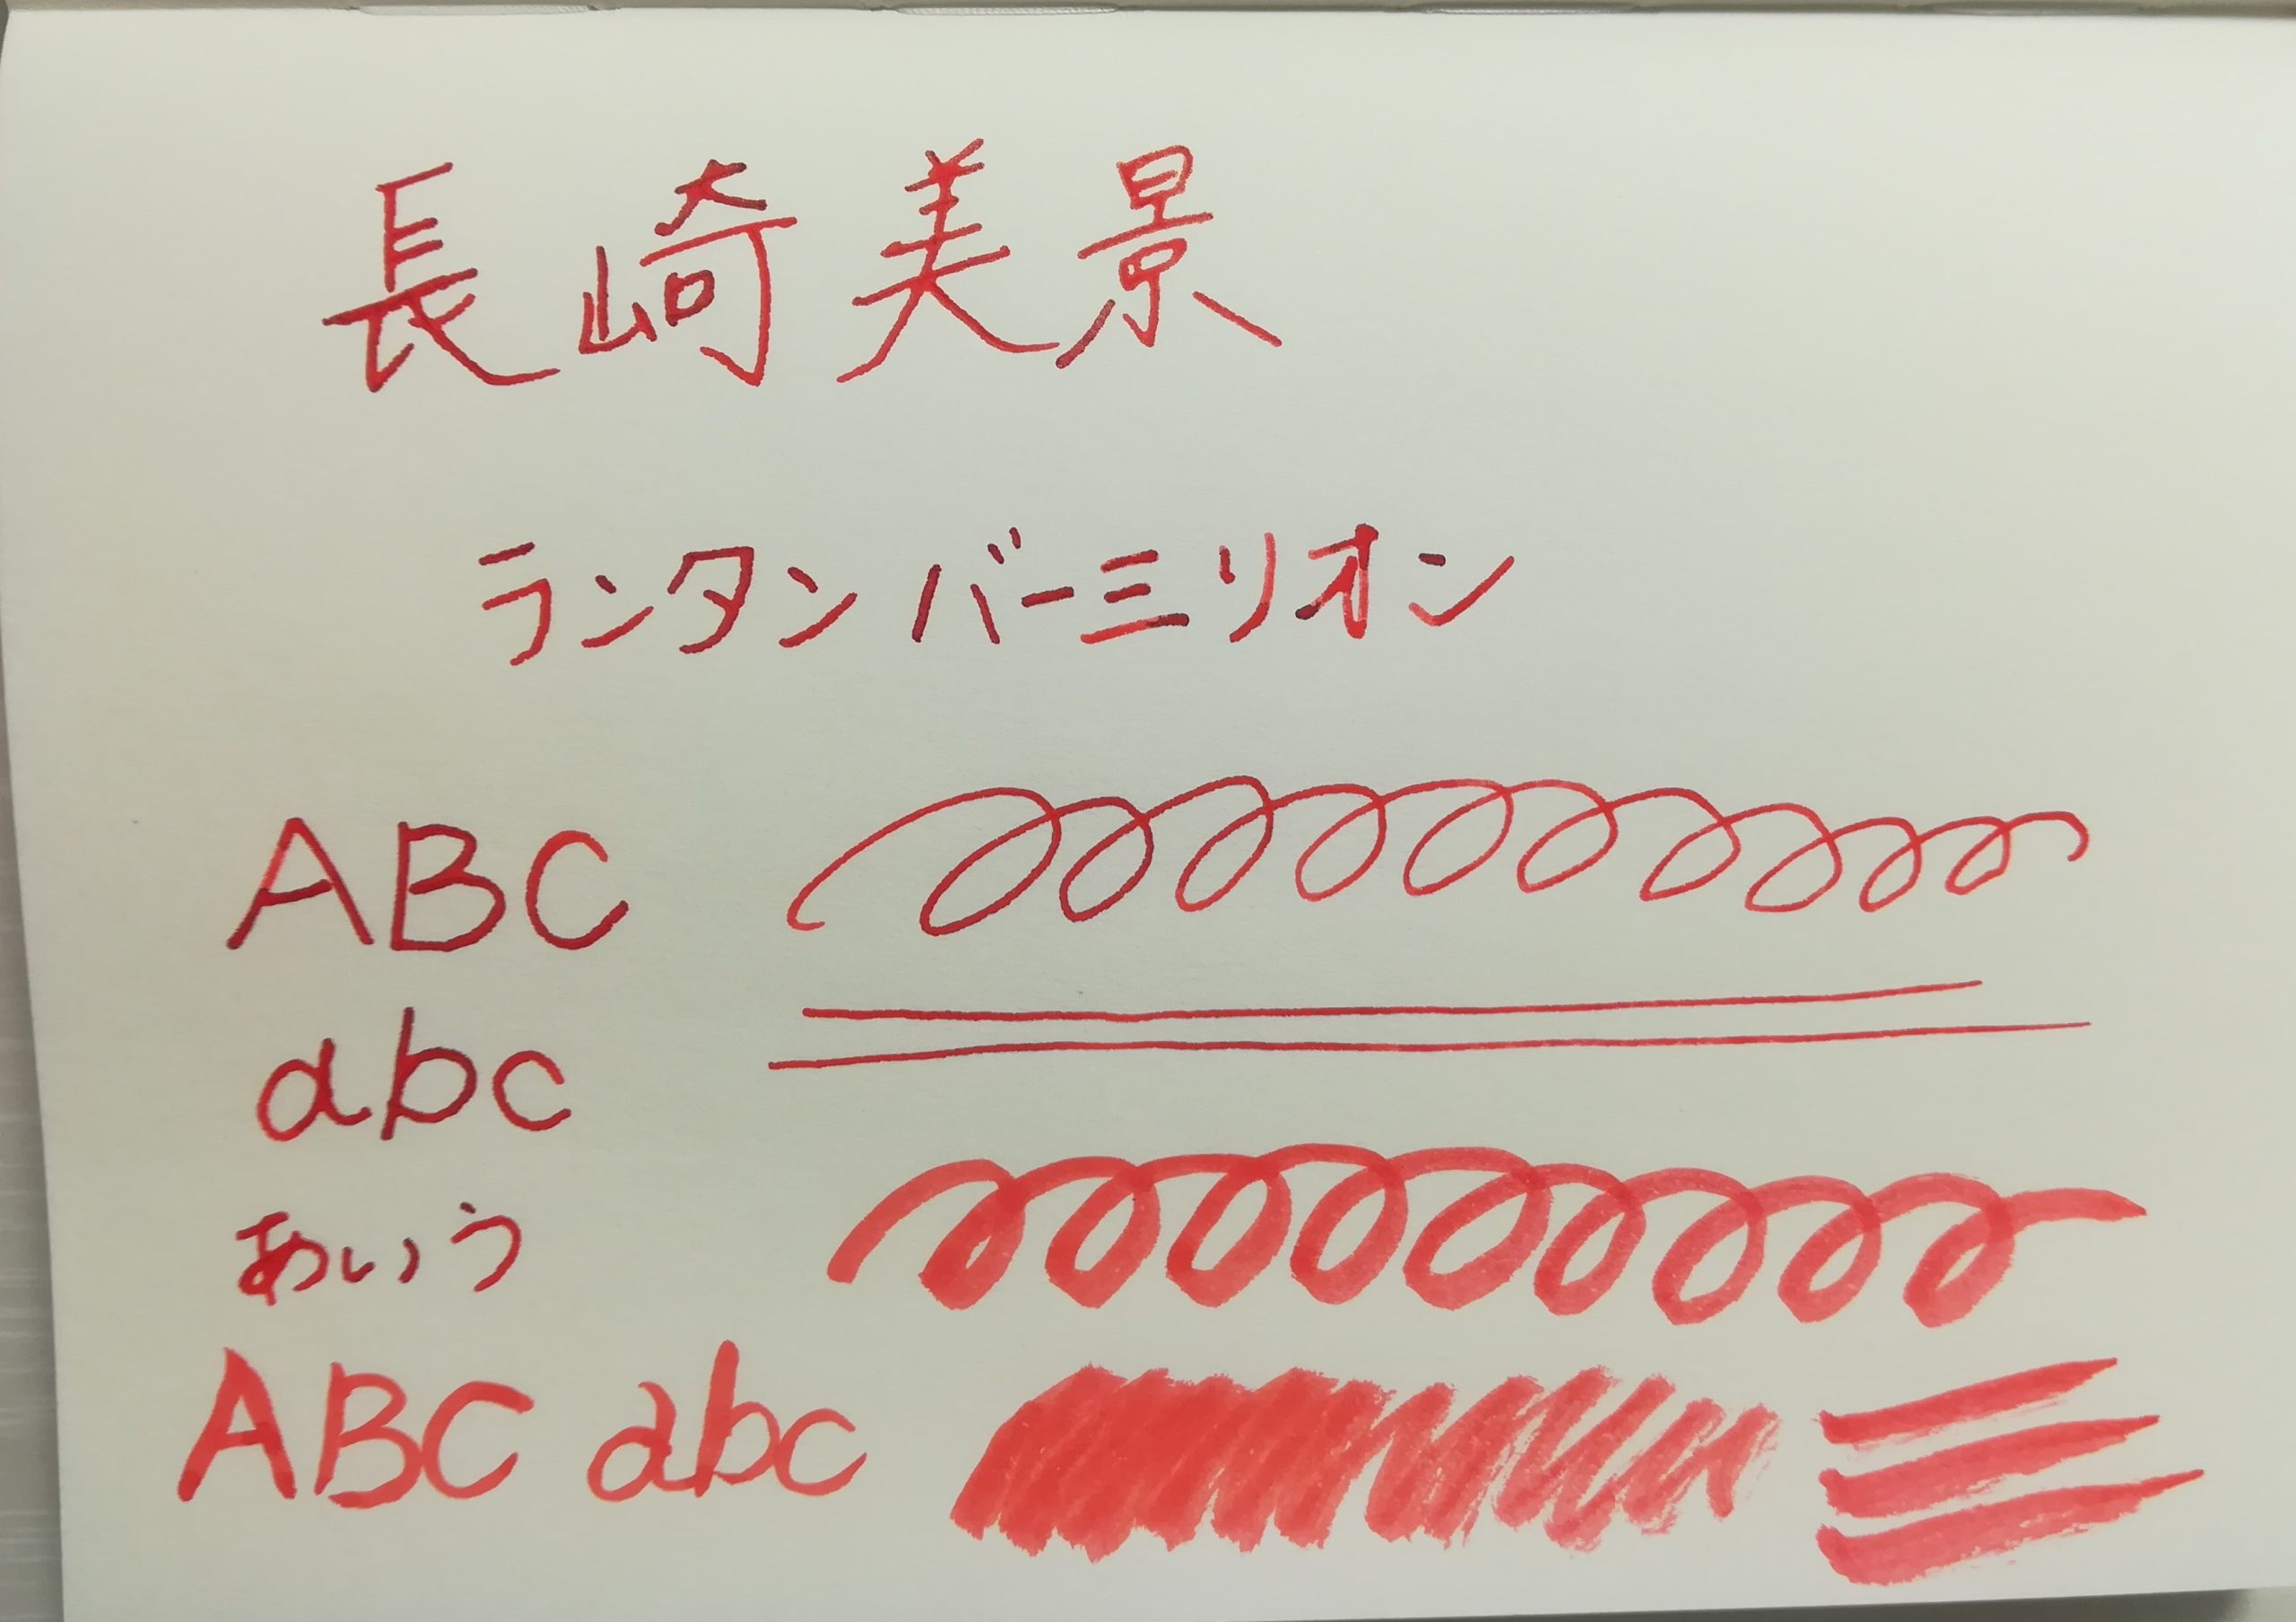 長崎美景
ランタンバーミリオン
ABC
abc
あいう
ABC abc